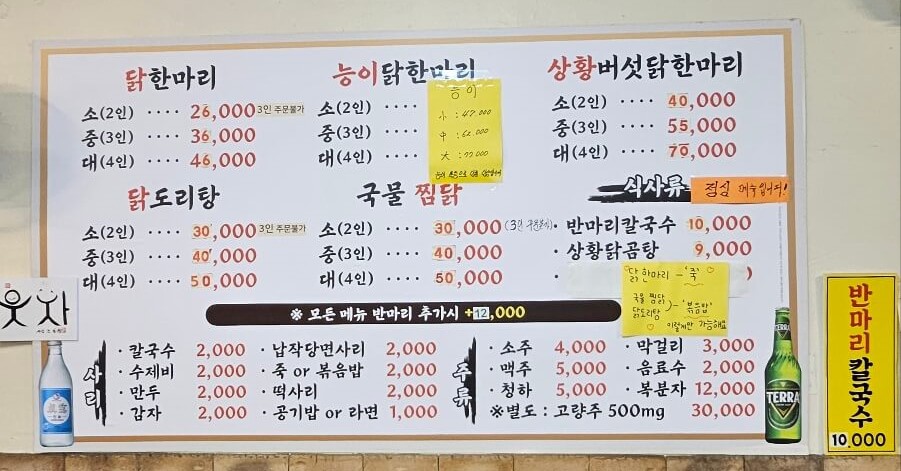 닭한마리
소(2인) ···· 26,000 3인 주문불가
중(3인) ···· 36,000
대(4인) ···· 46,000
능이닭한마리
소(2인) ····
중(3인) ····
대(4인) ····
능이
小 : 47,000
中 : 62,000
大 : 77,000
상황버섯닭한마리
소(2인) ···· 40,000
중(3인) ···· 55,000
대(4인) ···· 70,000
닭도리탕
소(2인) ···· 30,000 3인 주문불가
중(3인) ···· 40,000
대(4인) ···· 50,000
국물 찜닭
소(2인) ···· 30,000 (3인 주문불가)
중(3인) ···· 40,000
대(4인) ···· 50,000
식사류 점심 메뉴입니다!
· 반마리칼국수 10,000
· 상황닭곰탕 9,000
닭한마리 - '죽'
국물 찜닭
닭도리탕 ) - '볶음밥'
이렇게만 가능해요
※ 모든 메뉴 반마리 추가시 +12,000
사리
· 칼국수 2,000
· 수제비 2,000
· 만두 2,000
· 감자 2,000
· 납작당면사리 2,000
· 죽 or 볶음밥 2,000
· 떡사리 2,000
· 공기밥 or 라면 1,000
주류
· 소주 4,000
· 맥주 5,000
· 청하 5,000
· 막걸리 3,000
· 음료수 2,000
· 복분자 12,000
※별도 : 고량주 500mg 30,000
TERRA
TERRA
웃자
반마리칼국수
10,000